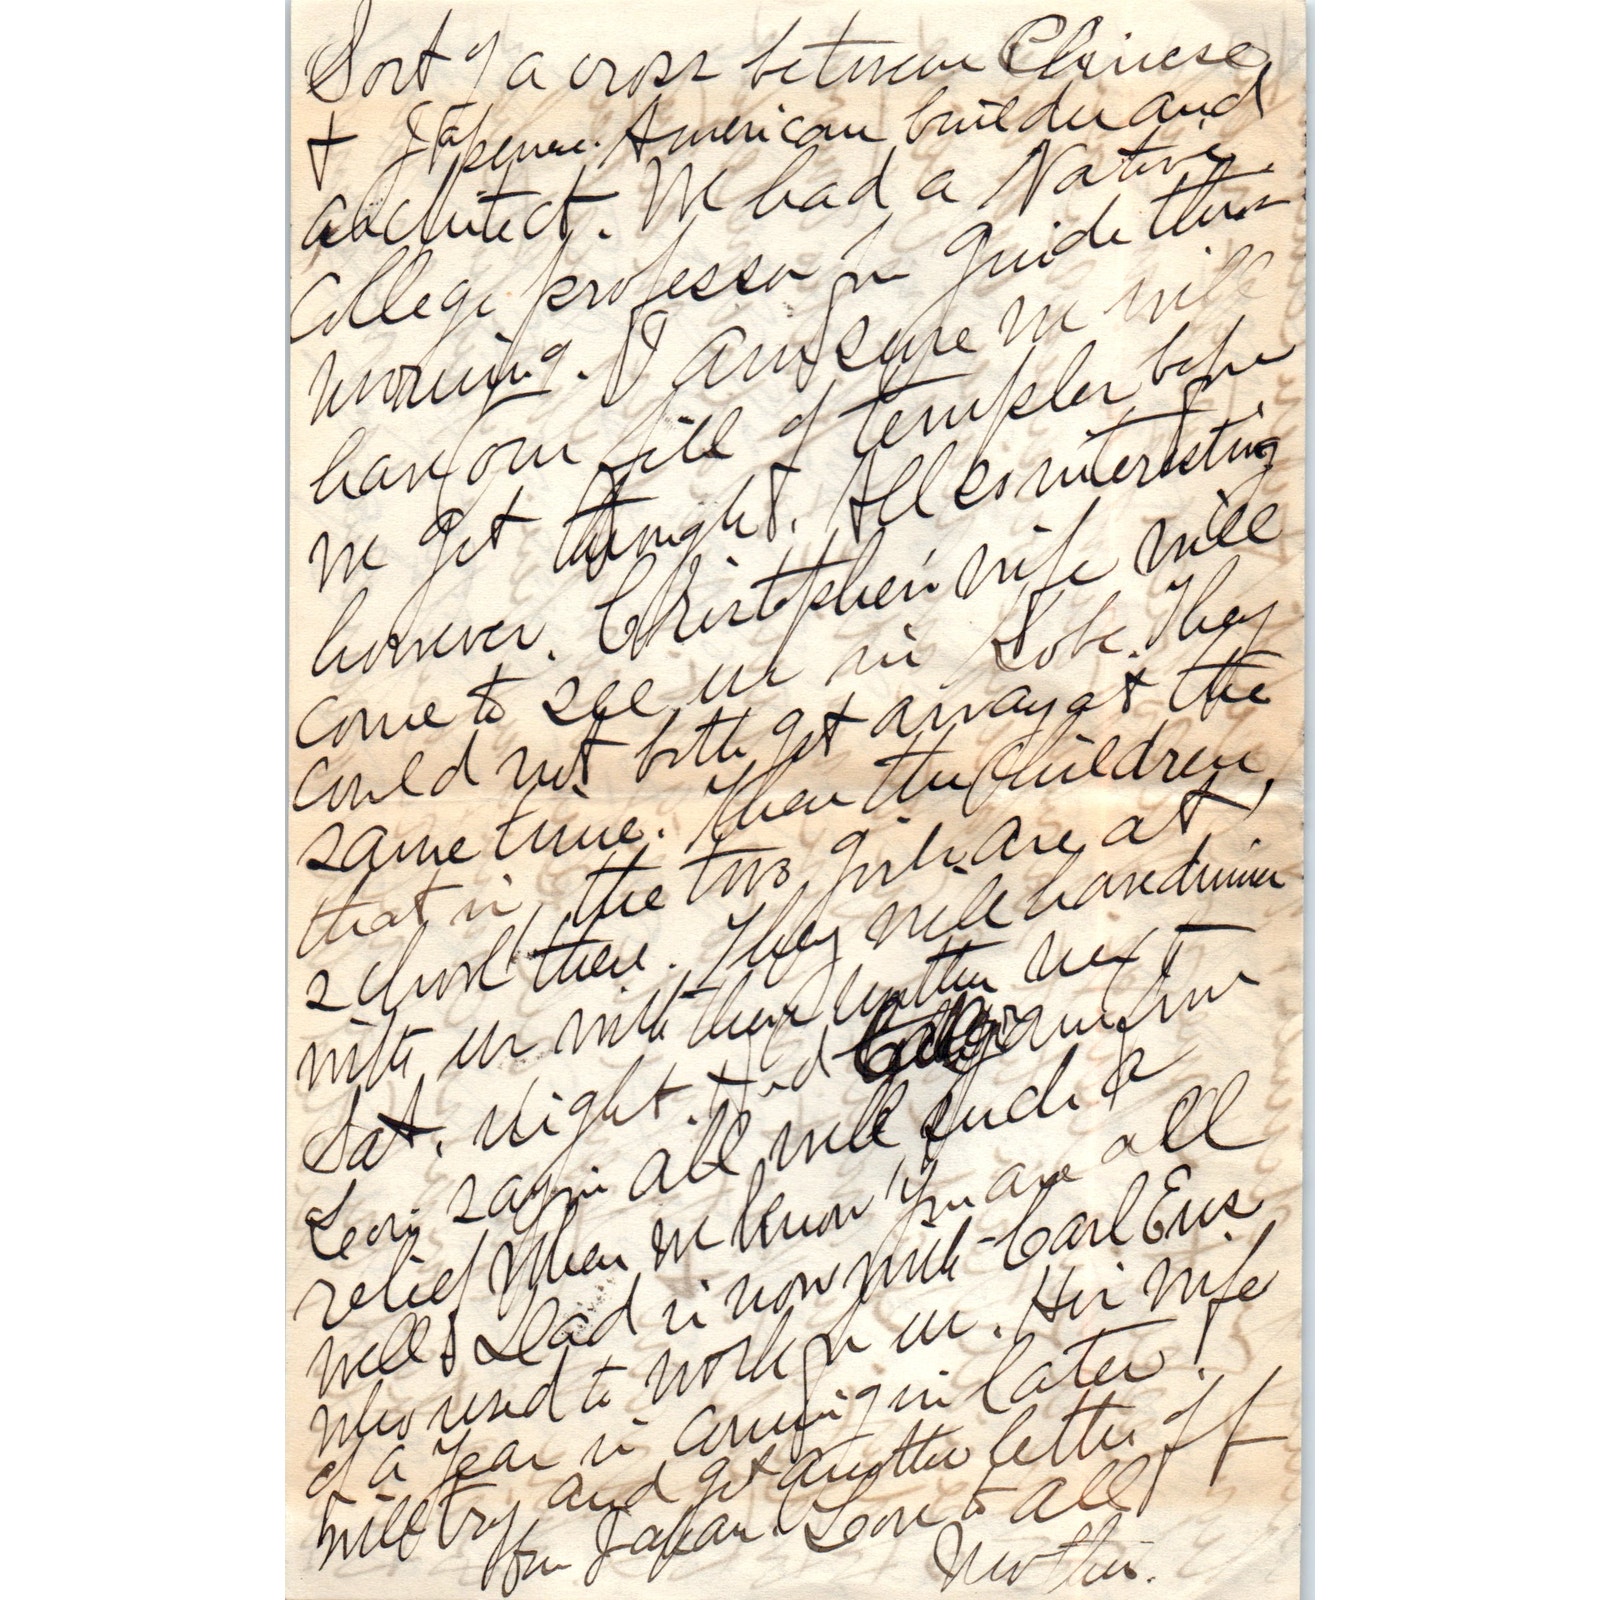 Sort of a cross between Chinese
& Japenese. American builder and
architect. We had a Native
College professor for guide this
morning. I am sure we will
have our fill of temples before
we get through. All so interesting
however. Christophers' wife will
come to see us in Kobe. They
could not both get away at the
same time. Then the children,
that is, the two girls are at
school there. They will have dinner
with us with their brother next
Sat. night. Had from
Leon saying all well. Such a
relief when we know you are all
well & Dad is now with Carl Ens
who used to work for us. His wife
of a year is coming in later.
Will try and get another letter off
from Japan. Love to all
Mother.